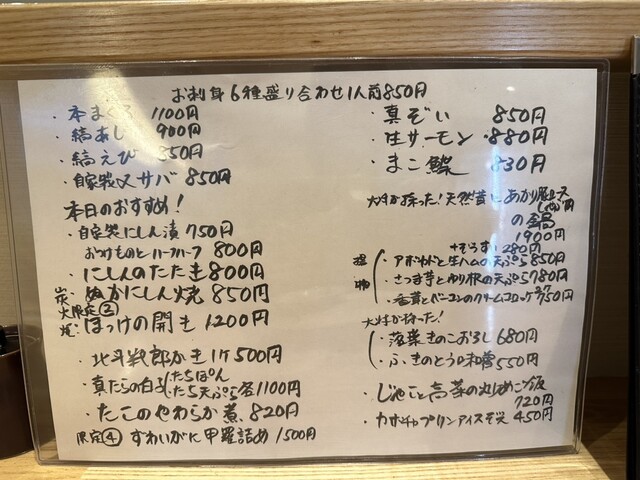 お刺身6種盛り合わせ1人前850円
・本まぐろ 1100円
・縞あじ 900円
・縞えび 850円
・自家製〆サバ 850円
本日のおすすめ!
・自家製にしん漬 750円
おつけものとハーフハーフ 800円
・にしんのたたき 800円
炭火焼
・ぬかにしん焼 850円
限定②
・ほっけの開き 1200円
・北斗戦郎かき1ケ 500円
・真たらの白子
たちぽん
たち天ぷら 各1100円
・たこのやわらか煮 820円
限定④ ずわいがに甲羅詰め 1500円
・真ぞい 850円
・生サーモン 880円
・まこ鰈 830円
大将が採った!天然茸とあかり豚ロース
の鍋
1900円
+ぞうすい 280円
揚物
・アボカドと生ハムの天ぷら 850円
・さつま芋とゆり根の天ぷら 780円
・香茸とベーコンのクリームコロッケ 750円
大将が採った!
・落葉きのこおろし 680円
・ふきのとう味噌 550円
・じゃこと高菜の丸はめご飯
720円
・カタラーナプリンアイス添え 450円